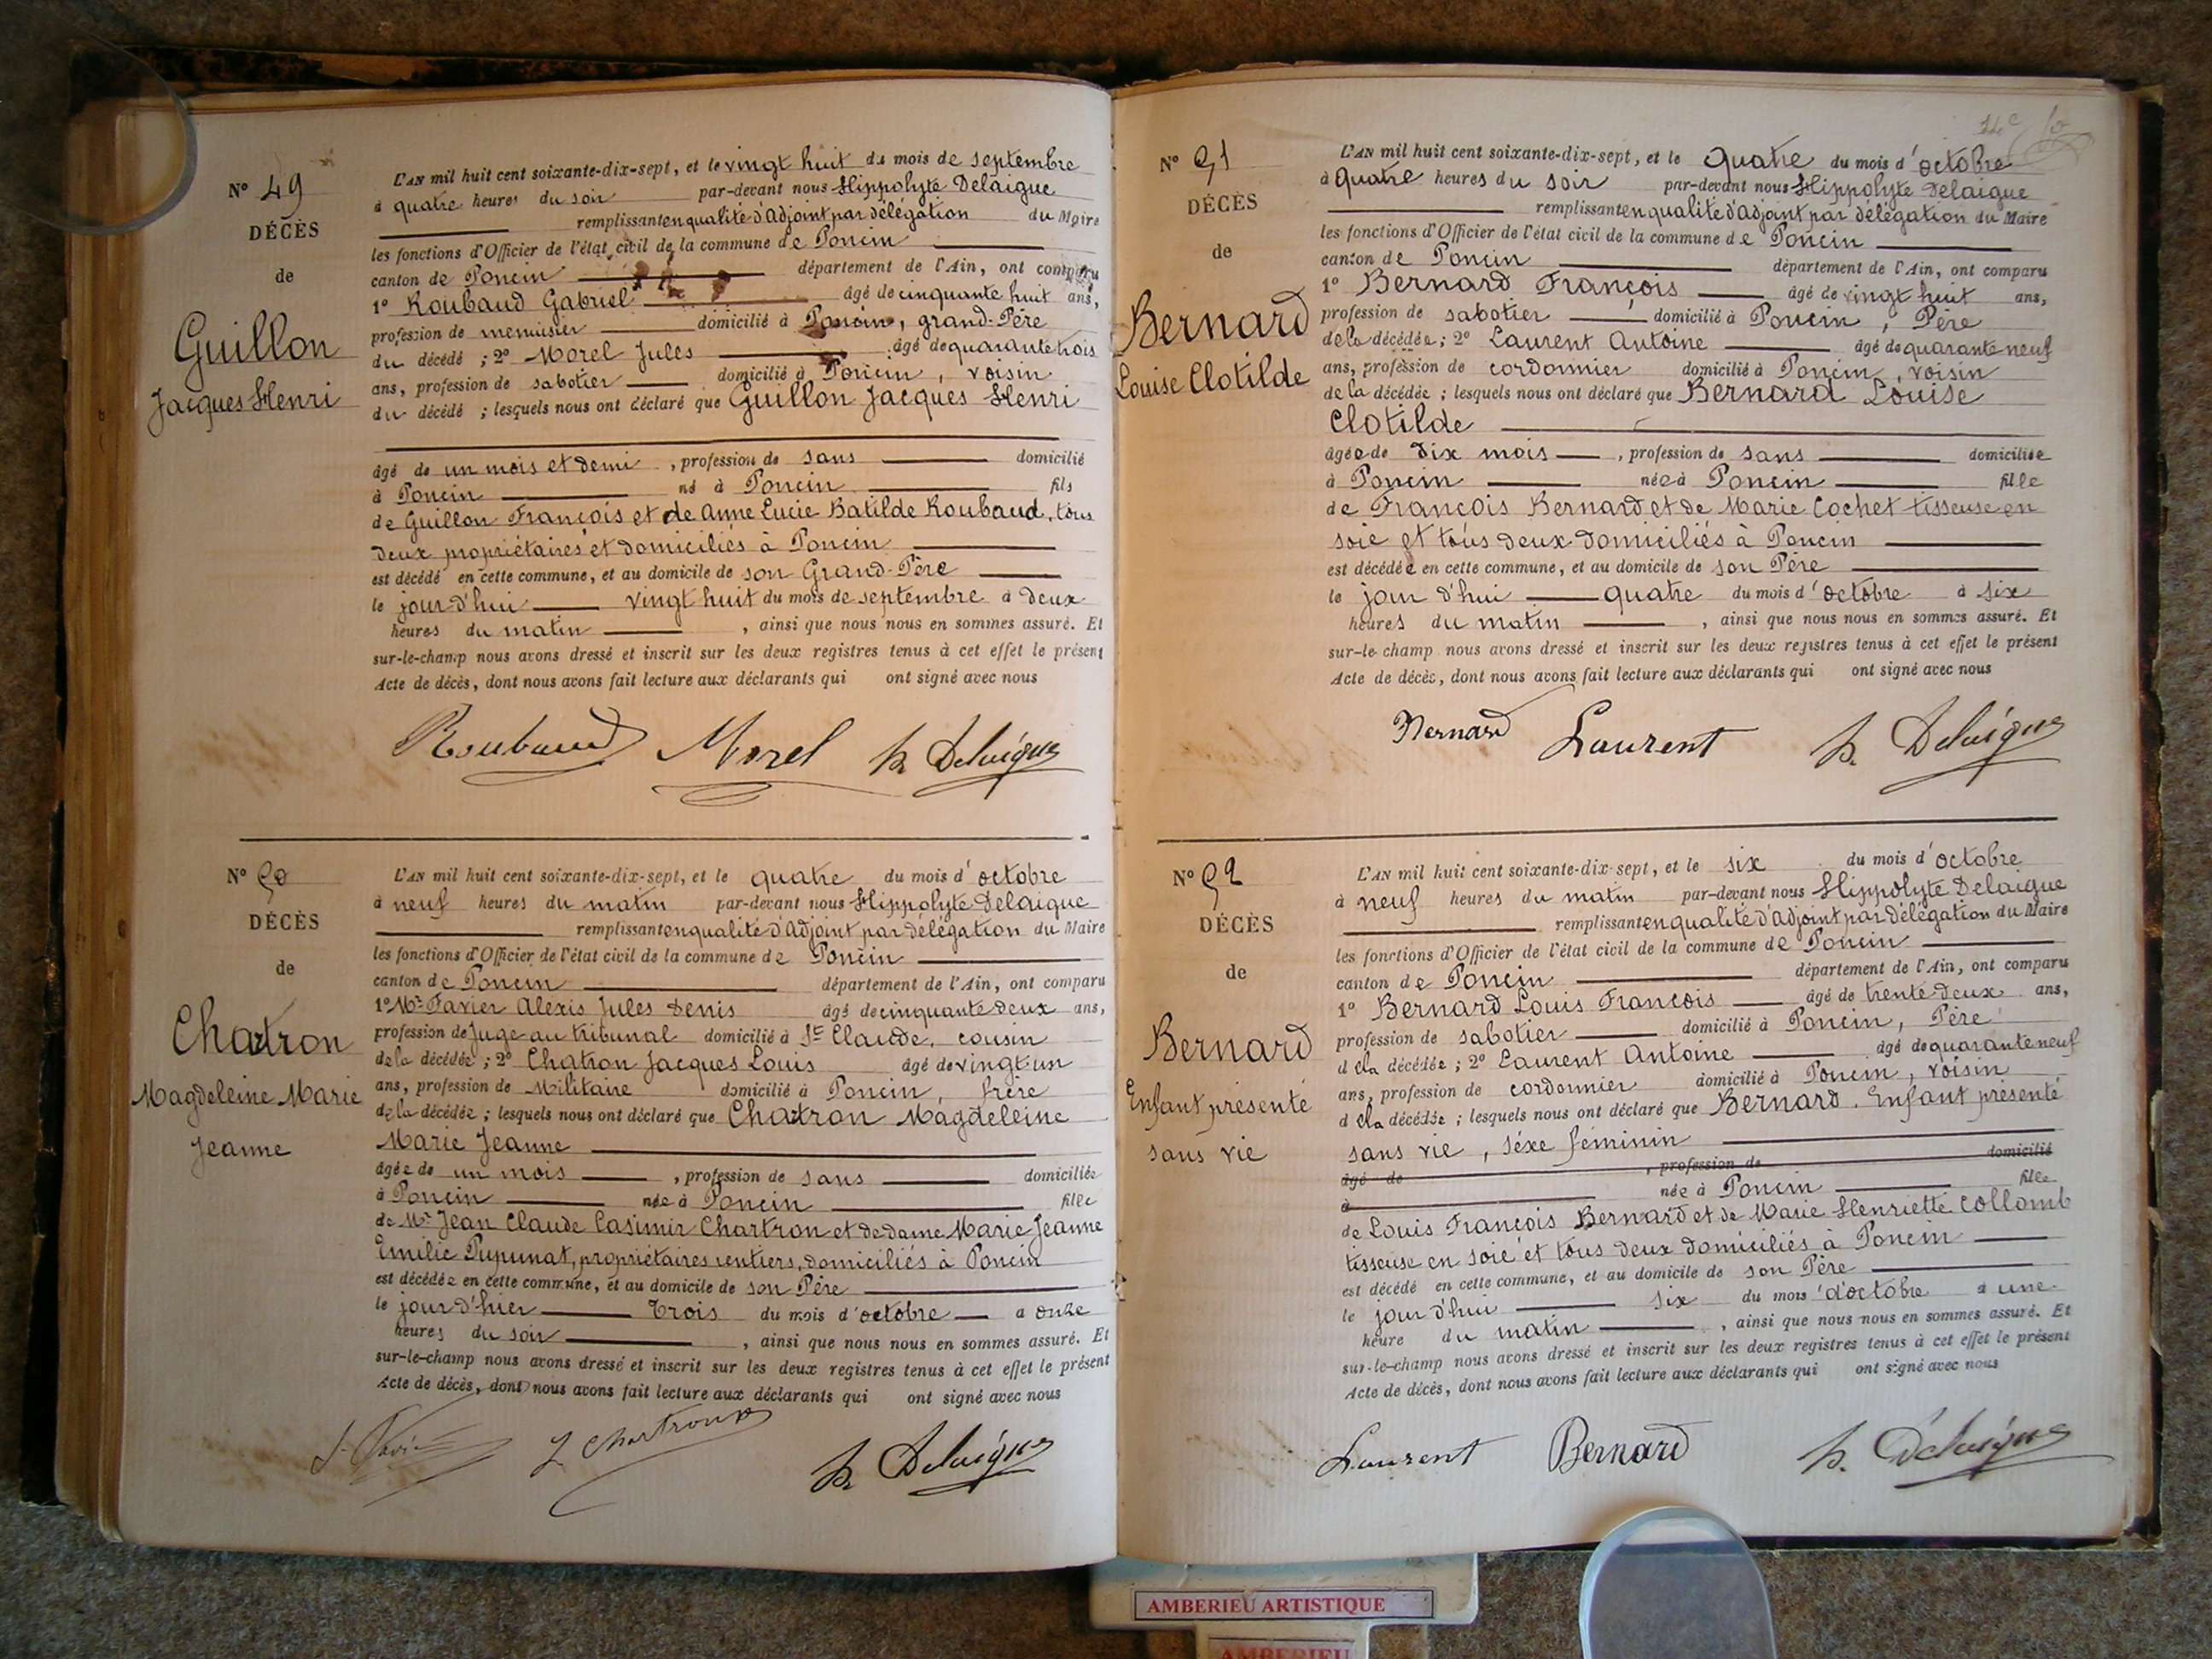 Nº 49
DÉCÈS
de
Guillon
Jacques Henri
L'AN mil huit cent soixante-dix-sept, et le vingt huit du mois de septembre
à quatre heures du soir par-devant nous Hippolyte Delaigue
remplissant en qualité d'Adjoint par délégation du Maire
les fonctions d'Officier de l'état civil de la commune de Poncin
canton de Poncin département de l'Ain, ont comparu
1º Roubaud Gabriel âgé de cinquante huit ans,
profession de menuisier domicilié à Poncin, grand-Père
du décédé ; 2º Morel Jules âgé de quarante trois
ans, profession de sabotier domicilié à Poncin, voisin
du décédé ; lesquels nous ont déclaré que Guillon Jacques Henri
âgé de un mois et demi, profession de sans domicilié
à Poncin né à Poncin fils
de Guillon François et de Anne Lucie Batilde Roubaud, tous
deux propriétaires et domiciliés à Poncin
est décédé en cette commune, et au domicile de son Grand-Père
le jour d'hui vingt huit du mois de septembre à deux
heures du matin, ainsi que nous nous en sommes assuré. Et
sur-le-champ nous avons dressé et inscrit sur les deux registres tenus à cet effet le présent
Acte de décès, dont nous avons fait lecture aux déclarants qui ont signé avec nous
Roubaud Morel h Delaigue
Nº 50
DÉCÈS
de
Chatron
Magdeleine Marie
Jeanne
L'AN mil huit cent soixante-dix-sept, et le quatre du mois d'octobre
à neuf heures du matin par-devant nous Hippolyte Delaigue
remplissant en qualité d'Adjoint par délégation du Maire
les fonctions d'Officier de l'état civil de la commune de Poncin
canton de Poncin département de l'Ain, ont comparu
1º Mr Favier Alexis Jules Denis âgé de cinquante deux ans,
profession de Juge au tribunal domicilié à St Claude, cousin
de la décédée ; 2º Chatron Jacques Louis âgé de vingt un
ans, profession de Militaire domicilié à Poncin, frère
de la décédée ; lesquels nous ont déclaré que Chatron Magdeleine
Marie Jeanne
âgée de un mois, profession de sans domiciliée
à Poncin née à Poncin fille
de Mr Jean Claude Casimir Chartron et de dame Marie Jeanne
Emilie Pupunat, propriétaires rentiers, domiciliés à Poncin
est décédée en cette commune, et au domicile de son Père
le jour d'hier trois du mois d'octobre à onze
heures du soir, ainsi que nous nous en sommes assuré. Et
sur-le-champ nous avons dressé et inscrit sur les deux registres tenus à cet effet le présent
Acte de décès, dont nous avons fait lecture aux déclarants qui ont signé avec nous
L Chartron h Delaigue
Nº 51
DÉCÈS
de
Bernard
Louise Clotilde
L'AN mil huit cent soixante-dix-sept, et le quatre du mois d'octobre
à quatre heures du soir par-devant nous Hippolyte Delaigue
remplissant en qualité d'adjoint par délégation du Maire
les fonctions d'Officier de l'état civil de la commune de Poncin
canton de Poncin département de l'Ain, ont comparu
1º Bernard François âgé de vingt huit ans,
profession de sabotier domicilié à Poncin, Père
de la décédée ; 2º Laurent Antoine âgé de quarante neuf
ans, profession de cordonnier domicilié à Poncin, voisin
de la décédée ; lesquels nous ont déclaré que Bernard Louise
Clotilde
âgée de dix mois, profession de sans domiciliée
à Poncin née à Poncin fille
de François Bernard et de Marie Cochet tisseuse en
soie et tous deux domiciliés à Poncin
est décédée en cette commune, et au domicile de son Père
le jour d'hui quatre du mois d'octobre à six
heures du matin, ainsi que nous nous en sommes assuré. Et
sur-le-champ nous avons dressé et inscrit sur les deux registres tenus à cet effet le présent
Acte de décès, dont nous avons fait lecture aux déclarants qui ont signé avec nous
Bernard Laurent h. Delaigue
Nº 52
DÉCÈS
de
Bernard
Enfant présenté
sans vie
L'AN mil huit cent soixante-dix-sept, et le six du mois d'octobre
à neuf heures du matin par-devant nous Hippolyte Delaigue
remplissant en qualité d'Adjoint par délégation du Maire
les fonctions d'Officier de l'état civil de la commune de Poncin
canton de Poncin département de l'Ain, ont comparu
1º Bernard Louis François âgé de trente deux ans,
profession de sabotier domicilié à Poncin, Père
de la décédée ; 2º Laurent Antoine âgé de quarante neuf
ans, profession de cordonnier domicilié à Poncin, voisin
de la décédée ; lesquels nous ont déclaré que Bernard. Enfant présenté
sans vie, séxe féminin
âgé de , profession de domicilié
à née à Poncin fille
de Louis François Bernard et de Marie Henriette Collomb
tisseuse en soie et tous deux domiciliés à Poncin
est décédé en cette commune, et au domicile de son Père
le jour d'hui six du mois d'octobre à une
heure du matin, ainsi que nous nous en sommes assuré. Et
sur-le-champ nous avons dressé et inscrit sur les deux registres tenus à cet effet le présent
Acte de décès, dont nous avons fait lecture aux déclarants qui ont signé avec nous
Laurent Bernard h. Delaigue
AMBERIEU ARTISTIQUE
AMBERIEU